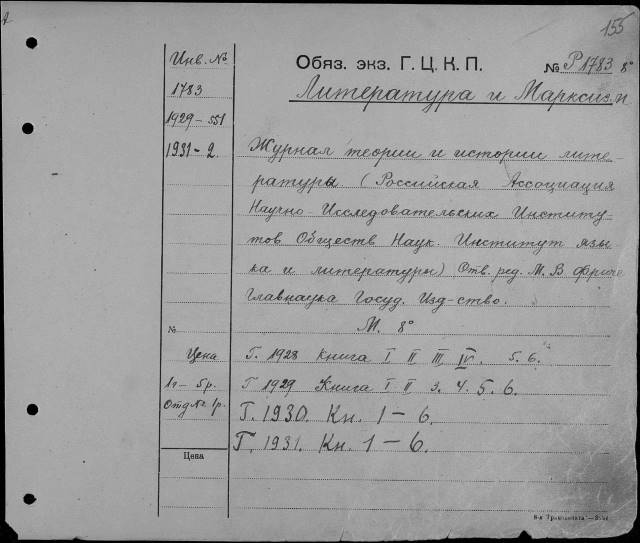 155
Инв. №
1783
1929-551
1931-2.
Обяз. экз. Г. Ц. К. П.
№ Р1783 8°
Литература и Марксизм
Журнал теории и истории лите-
ратуры (Российская Ассоциация
Научно-Исследовательских Институ-
тов Обществ Наук. Институт язы-
ка и литературы) Отв. ред. М. В Фриче
Главнаука Госуд. Изд-ство.
М. 8°
№
Цена
1г - 5р.
Отд № 1р.
Г. 1928 Книга I II III IV. 5. 6.
Г 1929 Книга I II 3. 4. 5. 6.
Г. 1930. Кн. 1-6.
Г. 1931. Кн. 1-6.
Цена